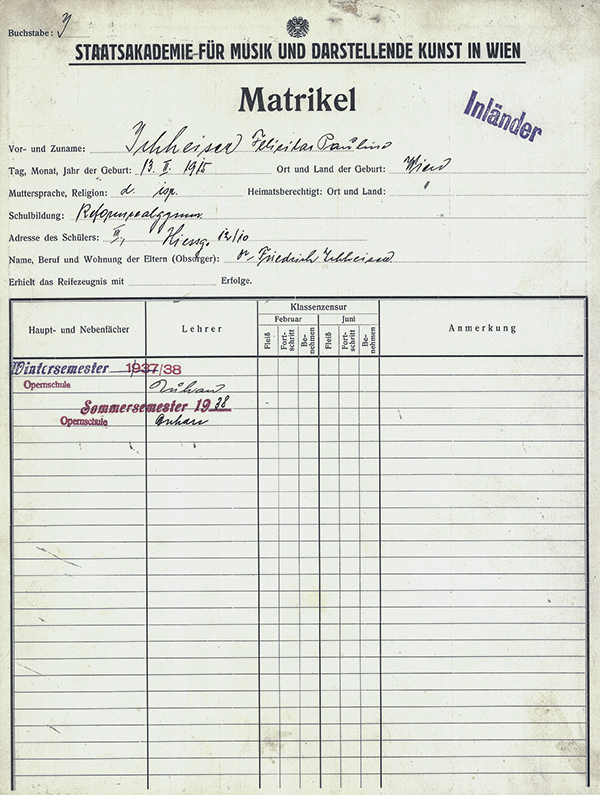 Buchstabe: J
STAATSAKADEMIE FÜR MUSIK UND DARSTELLENDE KUNST IN WIEN
Matrikel
Inländer
Vor- und Zuname: Ichheiser Felicitas Pauline
Tag, Monat, Jahr der Geburt: 13. II. 1915 Ort und Land der Geburt: Wien
Muttersprache, Religion: d. isr. Heimatsberechtigt: Ort und Land: "
Schulbildung: Reformrealgymn.
Adresse des Schülers: III, 12/10
Name, Beruf und Wohnung der Eltern (Obsorger): Dr Friedrich Ichheiser
Erhielt das Reifezeugnis mit Erfolge.
Haupt- und Nebenfächer Lehrer Klassenzensur Anmerkung
Februar Juni
Fleiß Fort-schritt Be-nehmen Fleiß Fort-schritt Be-nehmen
Wintersemester 1937/38
Opernschule
Sommersemester 1938
Opernschule